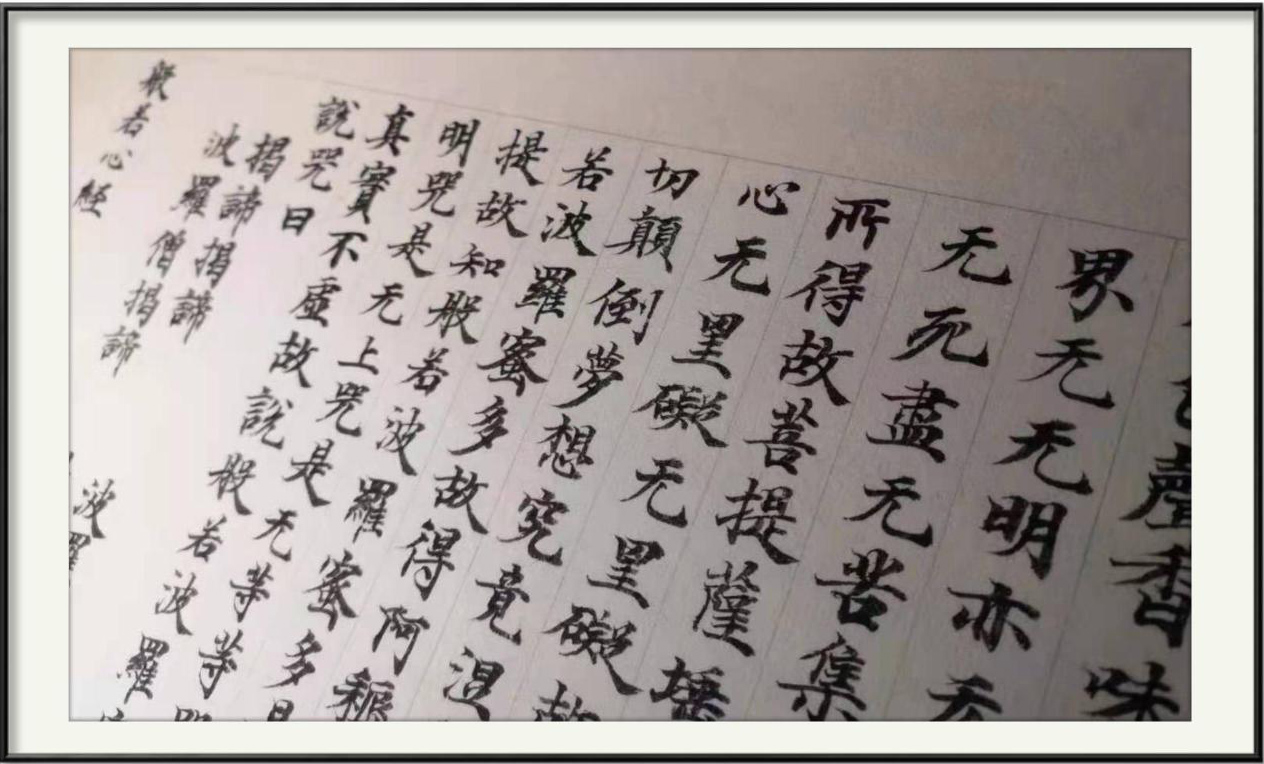 聲香味
界无无明亦无
无死盡无苦集
所得故菩提薩埵
心无罣礙无罣礙故
切顛倒夢想究竟涅
若波羅蜜多故得阿耨
提故知般若波羅蜜多是
明咒是无上咒是无等等咒
真實不虛故說般若波羅
說咒曰
揭諦揭諦
波羅僧揭諦
般若心経
波羅